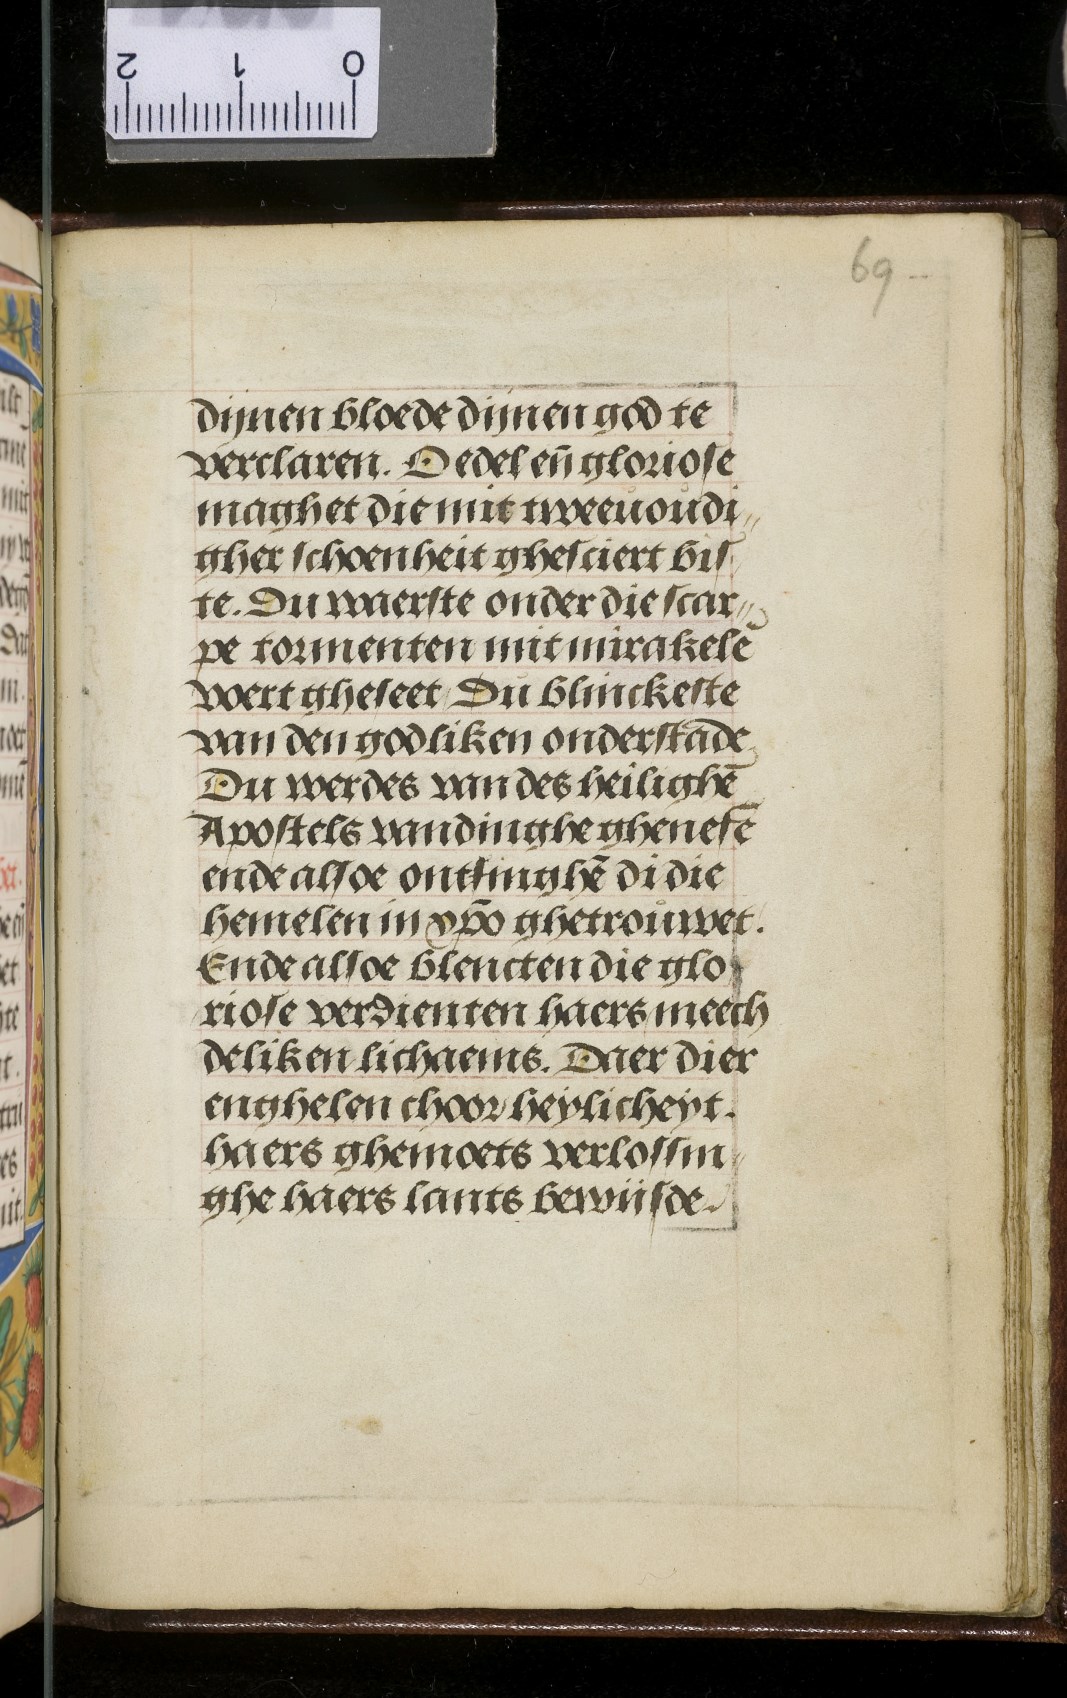 2 1 0
69
dijnen bloede dijnen god te
verclaren. O edel eñ gloriose
maghet die mit tweeuoudi„
gher schoenheit ghesciert bis
te. Du waerste onder die scar„
pe tormenten mit mirakelē
wert gheseet Du blinckeste
van den godliken onderstāde
Du werdes van des heilighē
Apostels vandinghe ghenesē
ende alsoe ontfinghē di die
hemelen in xp̄o ghetrouwet.
Ende alsoe blencten die glo
riose verdienten haers meech
deliken lichaems. Daer dier
enghelen choor heylicheyt.
haers ghemoets verlossin
ghe haers lants bewijsde.